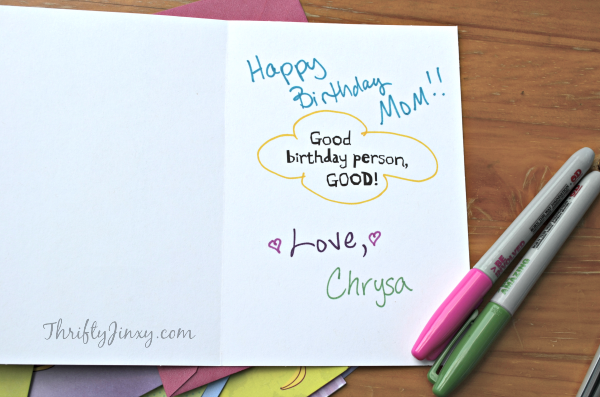 Happy
Birthday
MOM!!
Good
birthday person,
GOOD!
Love,
Chrysa
ThriftyJinxy.com
AMAZING